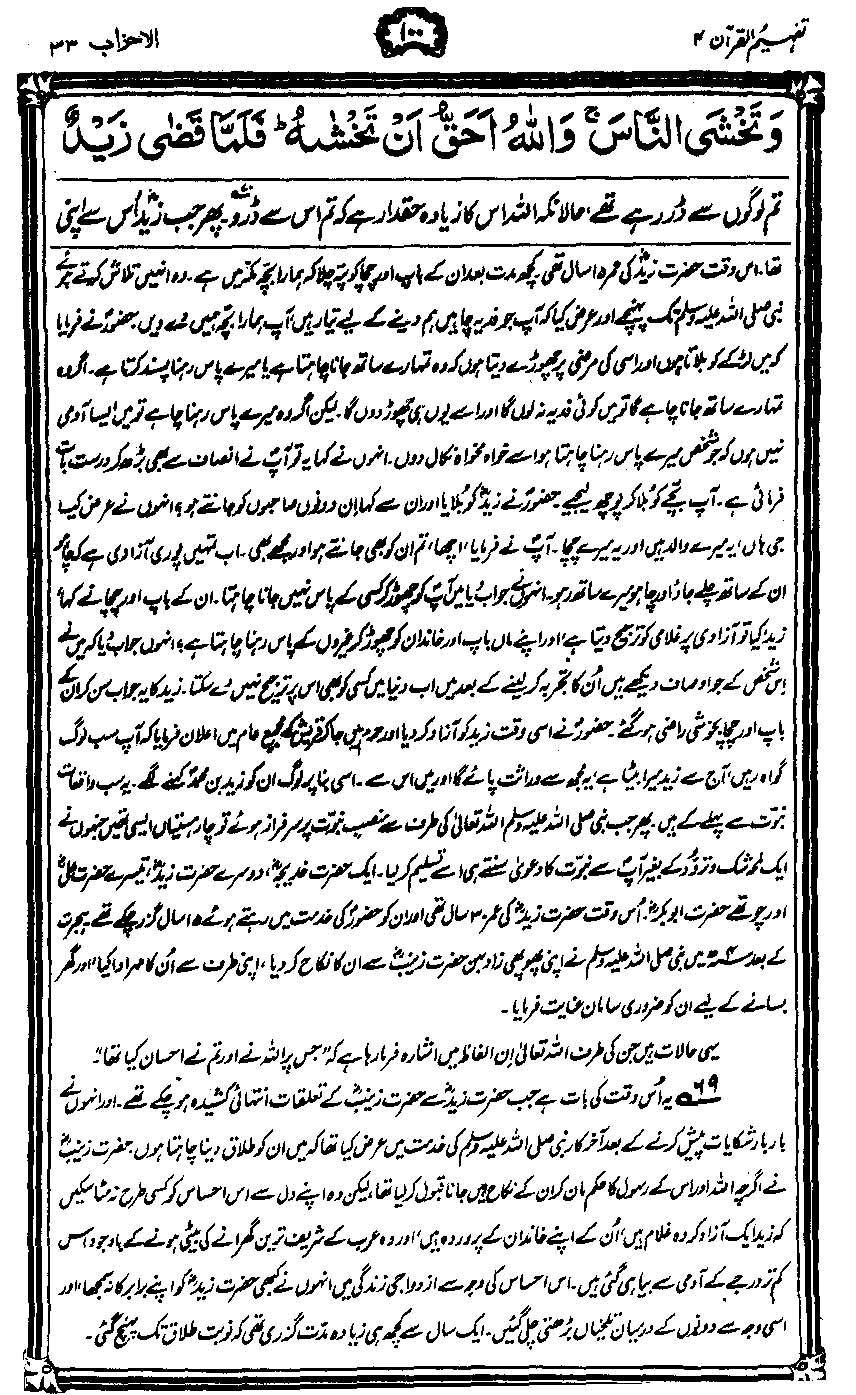 تفہیم القرآن ۴
۱۰۰
الاحزاب ۳۳
وَتَخْشَى النَّاسَ ۚ وَاللّٰهُ اَحَقُّ اَنْ تَخْشٰىهُ ؕ فَلَمَّا قَضٰى زَيْدٌ
تم لوگوں سے ڈر رہے تھے، حالانکہ اللہ اس کا زیادہ حقدار ہے کہ تم اس سے ڈرو۔ پھر جب زیدؓ اُس سے اپنی
تھا۔ اس وقت حضرت زیدؓ کی عمر ۱۵ سال تھی۔ کچھ مدت بعد ان کے باپ اور چچا کو پتہ چلا کہ ہمارا بچہ مکہ میں ہے۔ وہ انہیں تلاش کرتے ہوئے
نبی صلی اللہ علیہ وسلم تک پہنچے اور عرض کیا کہ آپ جو فدیہ چاہیں ہم دینے کے لیے تیار ہیں آپ ہمارا بچہ ہمیں دے دیں۔ حضورؐ نے فرمایا
کہ میں لڑکے کو بلاتا ہوں اور اسی کی مرضی پر چھوڑے دیتا ہوں کہ وہ تمہارے ساتھ جانا چاہتا ہے یا میرے پاس رہنا پسند کرتا ہے۔ اگر وہ
تمہارے ساتھ جانا چاہے گا تو میں کوئی فدیہ نہ لوں گا اور اسے یوں ہی چھوڑ دوں گا۔ لیکن اگر وہ میرے پاس رہنا چاہے تو میں ایسا آدمی
نہیں ہوں کہ جو شخص میرے پاس رہنا چاہتا ہو اسے خواہ مخواہ نکال دوں۔ انہوں نے کہا یہ تو آپؐ نے انصاف سے بھی بڑھ کر درست بات
فرمائی ہے۔ آپ بچے کو بلا کر پوچھ لیجیے۔ حضورؐ نے زیدؓ کو بلایا اور ان سے کہا اِن دونوں صاحبوں کو جانتے ہو؟ انہوں نے عرض کیا
جی ہاں، یہ میرے والد ہیں اور یہ میرے چچا۔ آپؐ نے فرمایا، اچھا، تم ان کو بھی جانتے ہو اور مجھے بھی۔ اب تمہیں پوری آزادی ہے کہ چاہو
ان کے ساتھ چلے جاؤ اور چاہو میرے ساتھ رہو۔ انہوں نے جواب دیا میں آپؐ کو چھوڑ کر کسی کے پاس نہیں جانا چاہتا۔ ان کے باپ اور چچا نے کہا،
زید، کیا تو آزادی پر غلامی کو ترجیح دیتا ہے، اور اپنے ماں باپ اور خاندان کو چھوڑ کر غیروں کے پاس رہنا چاہتا ہے؟ انہوں جواب دیا کہ میں نے
اِس شخص کے جو اوصاف دیکھے ہیں اُن کا تجربہ کر لینے کے بعد میں اب دنیا میں کسی کو بھی اس پر ترجیح نہیں دے سکتا۔ زید کا یہ جواب سن کر ان کے
باپ اور چچا بخوشی راضی ہو گئے۔ حضورؐ نے اسی وقت زید کو آزاد کر دیا اور حرم میں جا کر قریش کے مجمع عام میں اعلان فرمایا کہ آپ سب لوگ
گواہ رہیں، آج سے زید میرا بیٹا ہے، یہ مجھ سے وراثت پائے گا اور میں اس سے۔ اسی بنا پر لوگ ان کو زید بن محمدؐ کہنے لگے۔ یہ سب واقعات
نبوت سے پہلے کے ہیں۔ پھر جب نبی صلی اللہ علیہ وسلم اللہ تعالیٰ کی طرف سے منصب نبوت پر سرفراز ہوئے تو چار ہستیاں ایسی تھیں جنہوں نے
ایک لمحہ شک و تردّد کے بغیر آپؐ سے نبوت کا دعویٰ سنتے ہی اسے تسلیم کر لیا۔ ایک حضرت خدیجہؓ، دوسرے حضرت زیدؓ، تیسرے حضرت علیؓ
اور چوتھے حضرت ابوبکرؓ۔ اُس وقت حضرت زیدؓ کی عمر ۳۰ سال تھی اور ان کو حضورؐ کی خدمت میں رہتے ہوئے ۱۵ سال گزر چکے تھے۔ ہجرت
کے بعد ۴ھ میں نبی صلی اللہ علیہ وسلم نے اپنی پھوپھی زاد بہن حضرت زینبؓ سے ان کا نکاح کر دیا، اپنی طرف سے اُن کا مہر ادا کیا، اور گھر
بسانے کے لیے ان کو ضروری سامان عنایت فرمایا۔
یہی حالات ہیں جن کی طرف اللہ تعالیٰ اِن الفاظ میں اشارہ فرما رہا ہے کہ ”جس پر اللہ نے اور تم نے احسان کیا تھا“۔
۶۹ یہ اُس وقت کی بات ہے جب حضرت زیدؓ سے حضرت زینبؓ کے تعلقات انتہائی کشیدہ ہو چکے تھے۔ اور انہوں نے
بار بار شکایات پیش کرنے کے بعد آخر کار نبی صلی اللہ علیہ وسلم کی خدمت میں عرض کیا تھا کہ میں ان کو طلاق دینا چاہتا ہوں۔ حضرت زینبؓ
نے اگرچہ اللہ اور اس کے رسول کا حکم مان کر ان کے نکاح میں جانا قبول کر لیا تھا، لیکن وہ اپنے دل سے اس احساس کو کسی طرح نہ مٹا سکیں
کہ زید ایک آزاد کردہ غلام ہیں، اُن کے اپنے خاندان کے پروردہ ہیں، اور وہ عرب کے شریف ترین گھرانے کی بیٹی ہونے کے باوجود اس
کم تر درجے کے آدمی سے بیاہی گئی ہیں۔ اس احساس کی وجہ سے ازدواجی زندگی میں انہوں نے کبھی حضرت زیدؓ کو اپنے برابر کا نہ سمجھا، اور
اسی وجہ سے دونوں کے درمیان تلخیاں بڑھتی چلی گئیں۔ ایک سال سے کچھ ہی زیادہ مدّت گزری تھی کہ نوبت طلاق تک پہنچ گئی۔